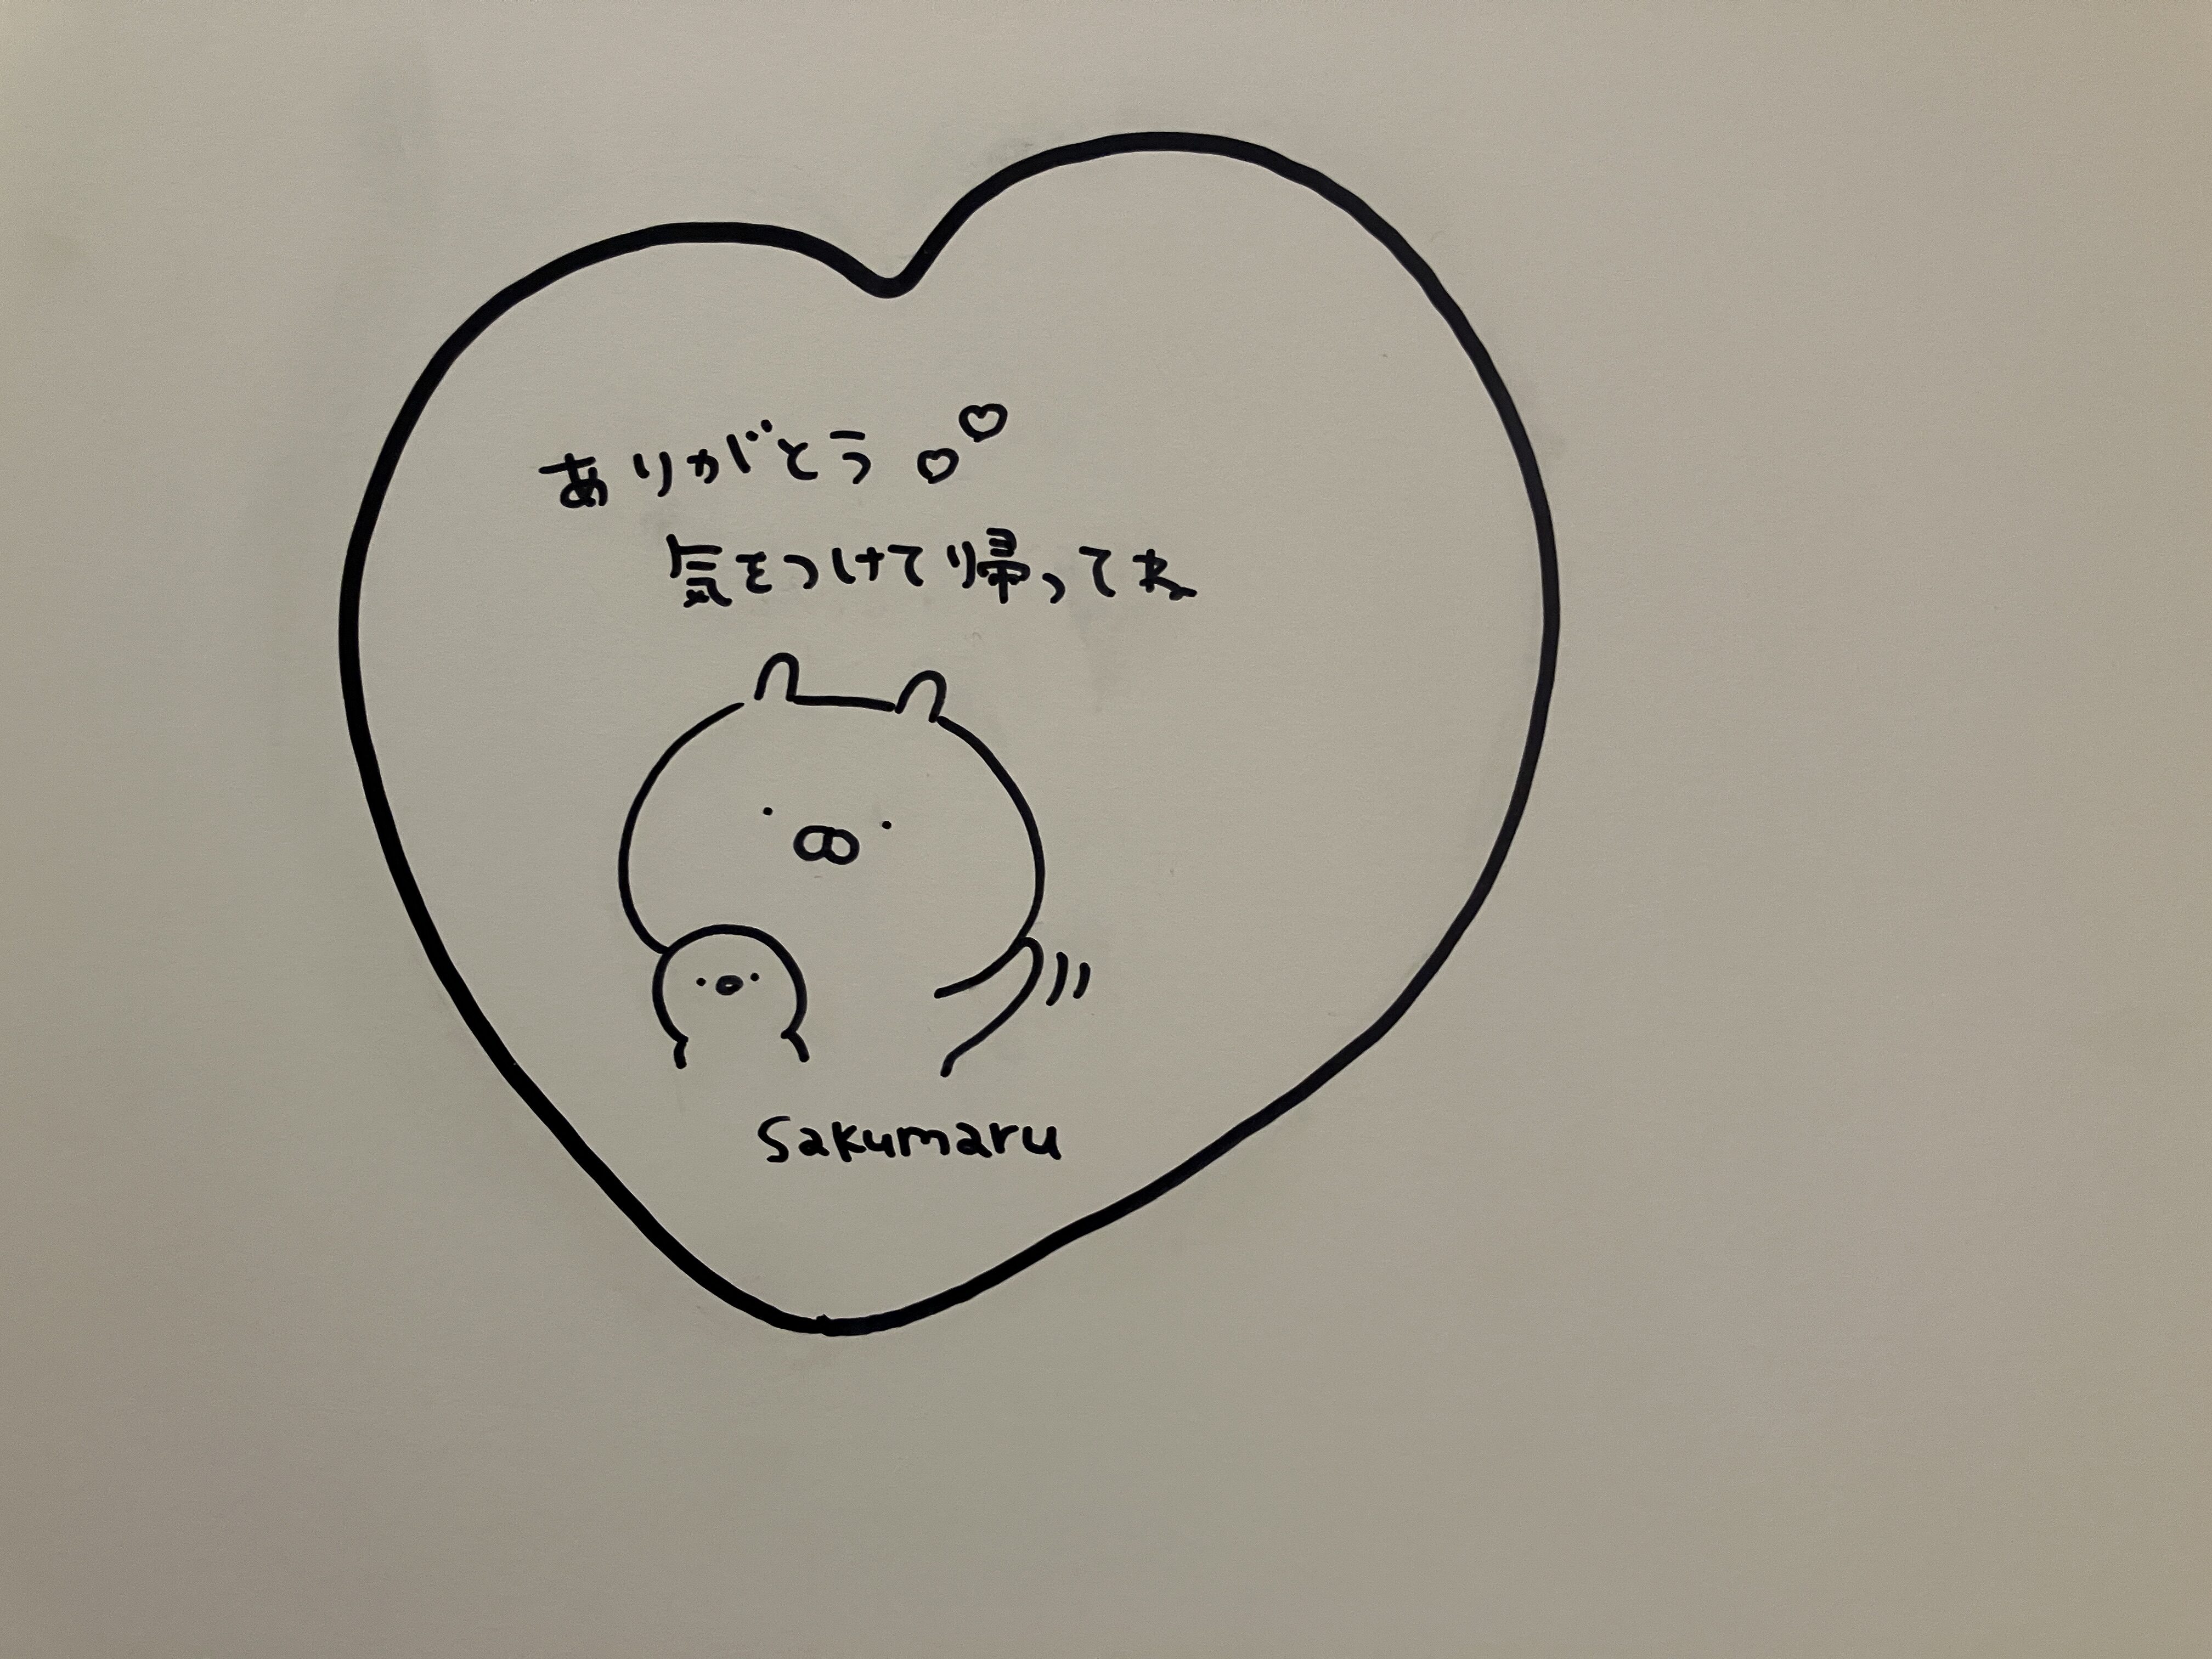 ありがとう♡♡
気をつけて帰ってね
Sakumaru